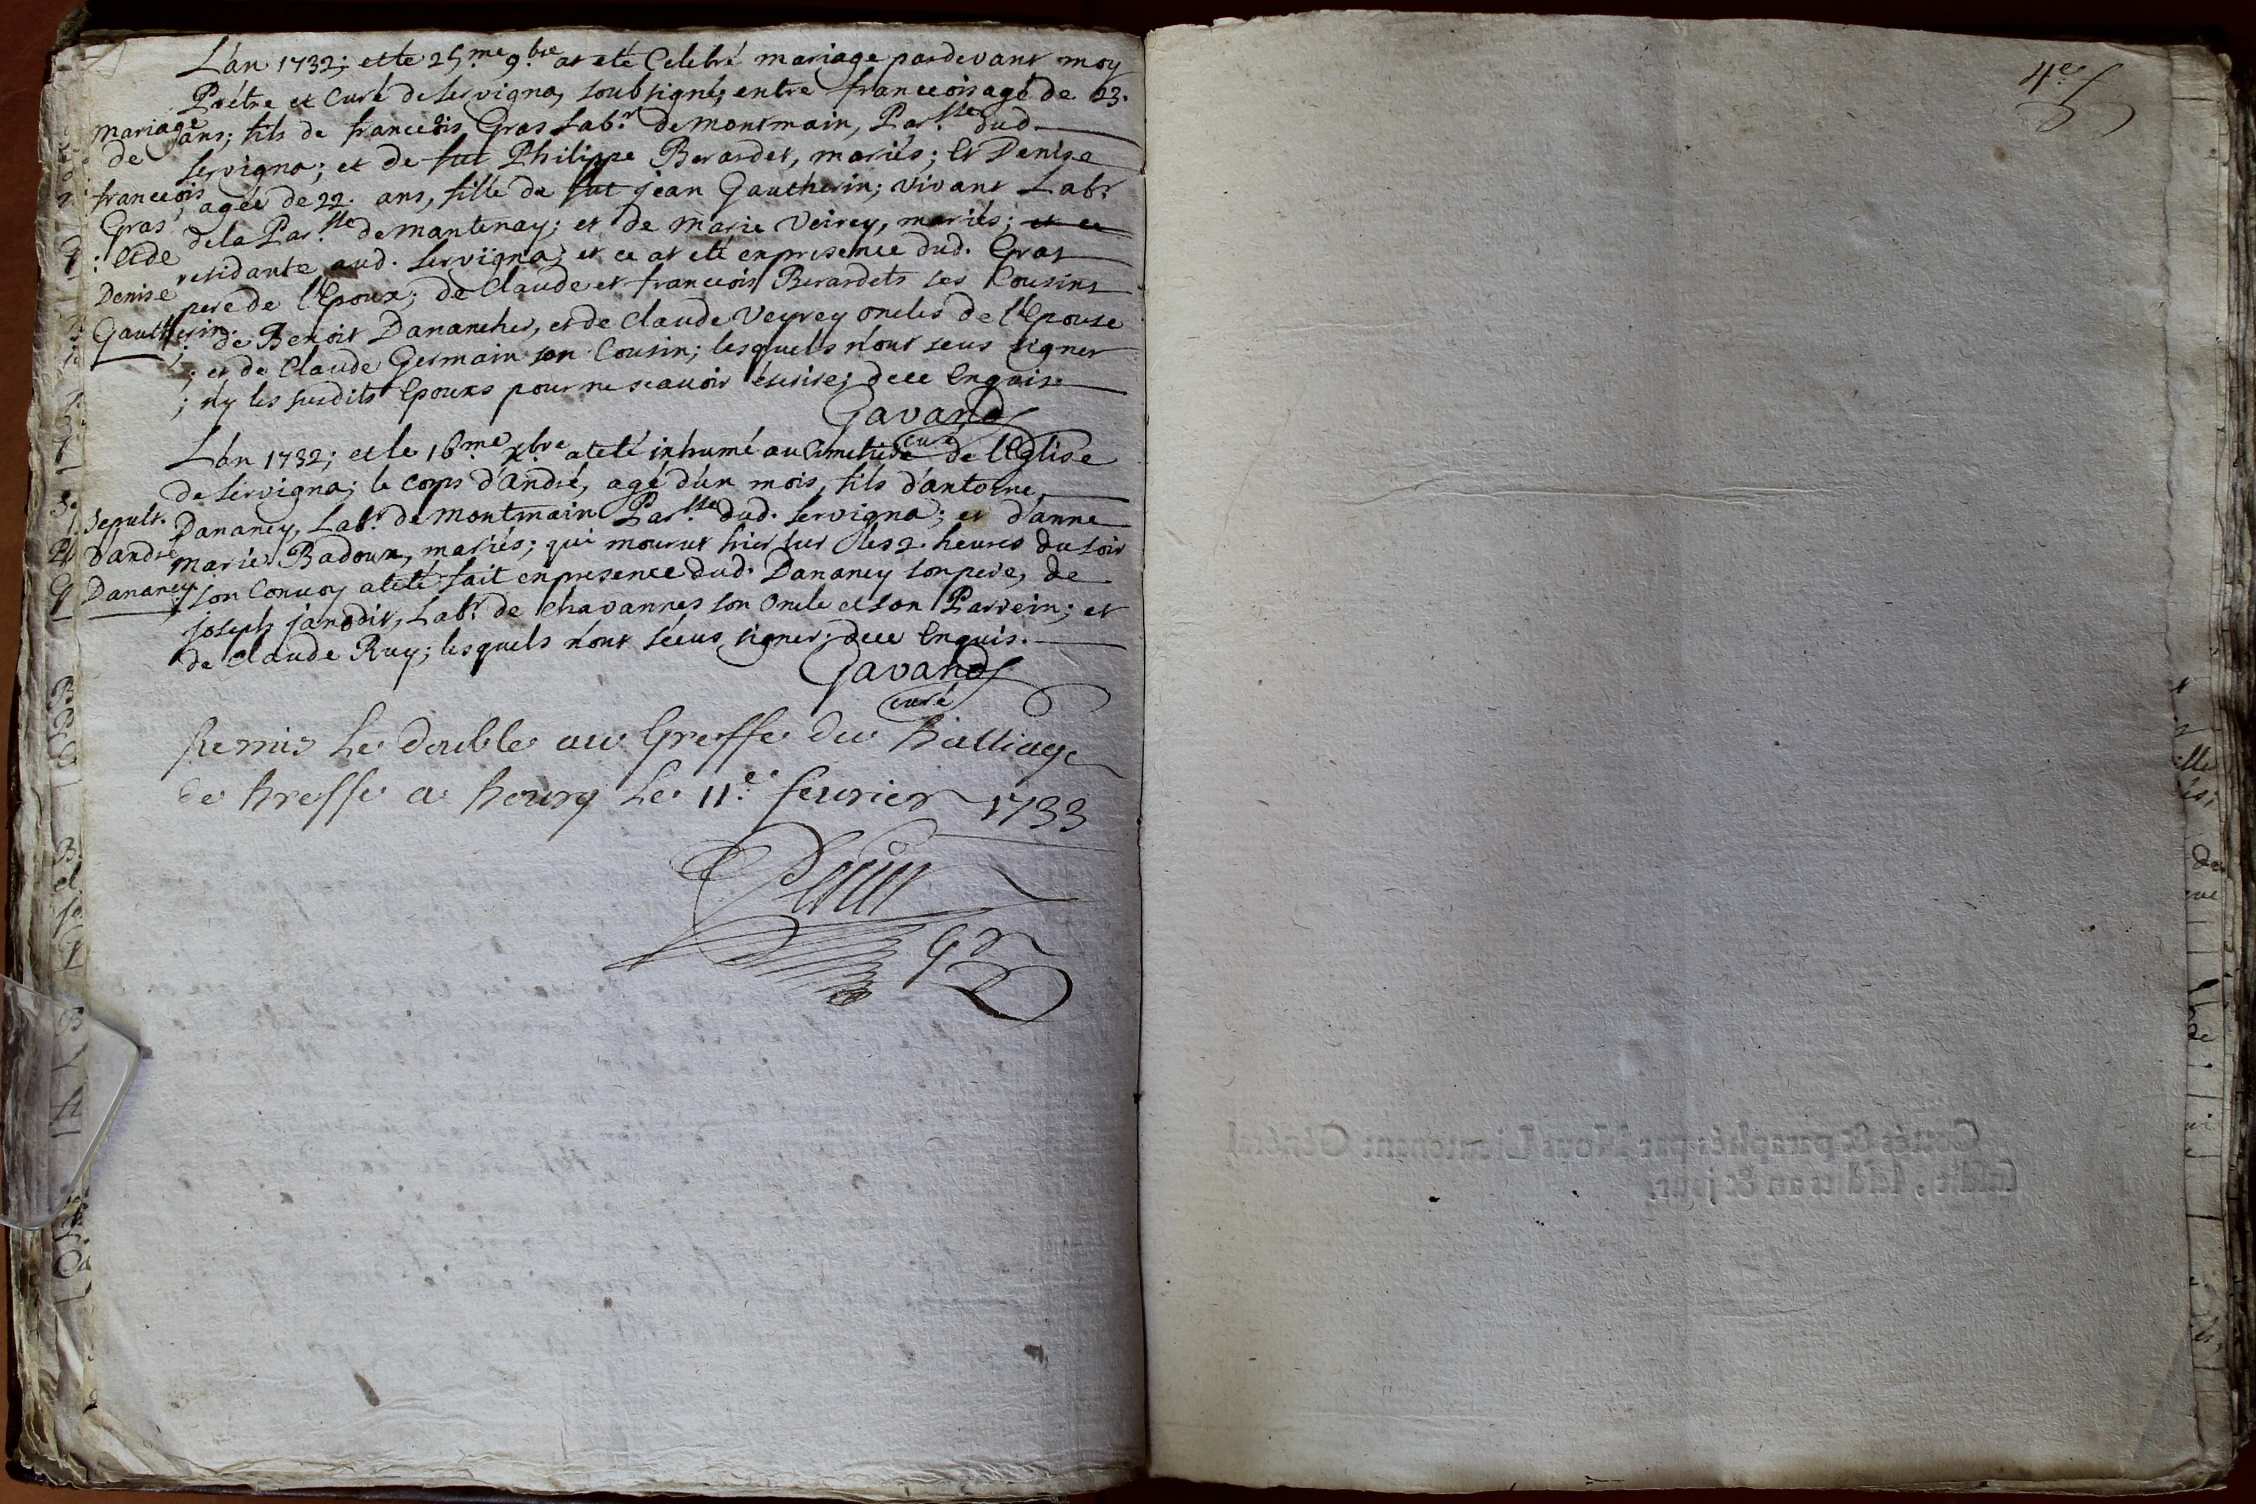 L'an 1732; et le 25.me 9.bre at eté Celebré mariage pardevant moy
Prêtre et Curé de Servigna, soubsigné; entre franceois agé de 23.
ans; fils de franceois Gras Lab.r de montmain, Par.sse dud.
Servigna; et de fut Philippe Berardet, mariés; Et Denise
agée de 22. ans, fille de fut jean Gautherin; vivant Lab.r
de la Par.sse de mantenay; et de Marie Veirey, mariés; et ce
residante aud. Servigna; et ce at eté en presence dud. Gras
pere de l'Epoux; de Claude et francois Berardets ses Cousins
; de Benoit Dananches, et de Claude Veyrey oncles de l'Epouse
; et de Claude Germain son Cousin; lesquels n'ont seus signer
; n'y les susdits Epouxs pour ne scavoir écrire; de ce Enquis
mariage
de
francois
Gras
: et de
Denise
Gautherin.
Gavand
curé
L'an 1732; et le 16.me X.bre at eté inhumé au Cimetiere de l'Eglise
de Servigna; le corps d'André, agé d'un mois, fils d'antoine
Dananey, Lab.r de montmain Par.sse dud. Servigna; et d'anne
Marie Badoux, mariés; qui mourut hier sur les 2. heures du soir
son Convoy at eté fait en presence dud. Dananey son pere, de
joseph janodit, Lab.r de Chavannes son Oncle et son Parrein; et
de Claude Ruy; lesquels n'ont sceus signer de ce Enquis.
Sepult.
d'andre
Dananey
Gavand
curé
Remis Le double au Greffe du Balliage
de bresse a bourg Le 11.e feurier 1733
4.e
Cottés & paraphés par Nous Lieutenant Général
susdit, lesdits an & jour.